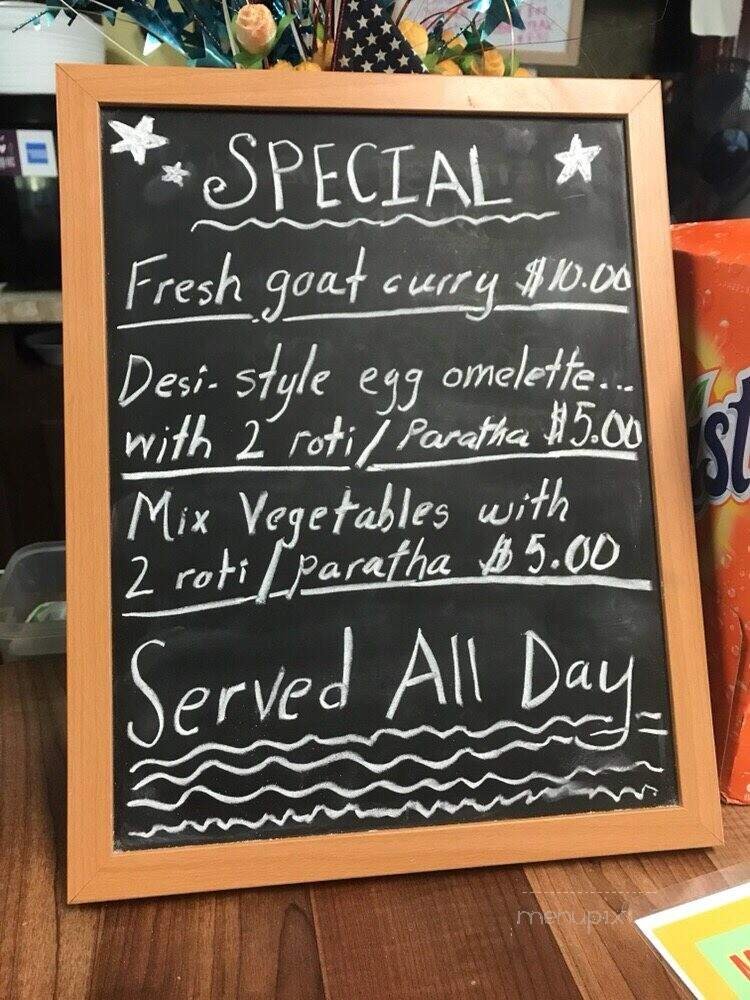 SPECIAL
Fresh goat curry $10.00
Desi-style egg omelette...
with 2 roti/Paratha $5.00
Mix Vegetables with
2 roti/paratha $5.00
Served All Day
menupix